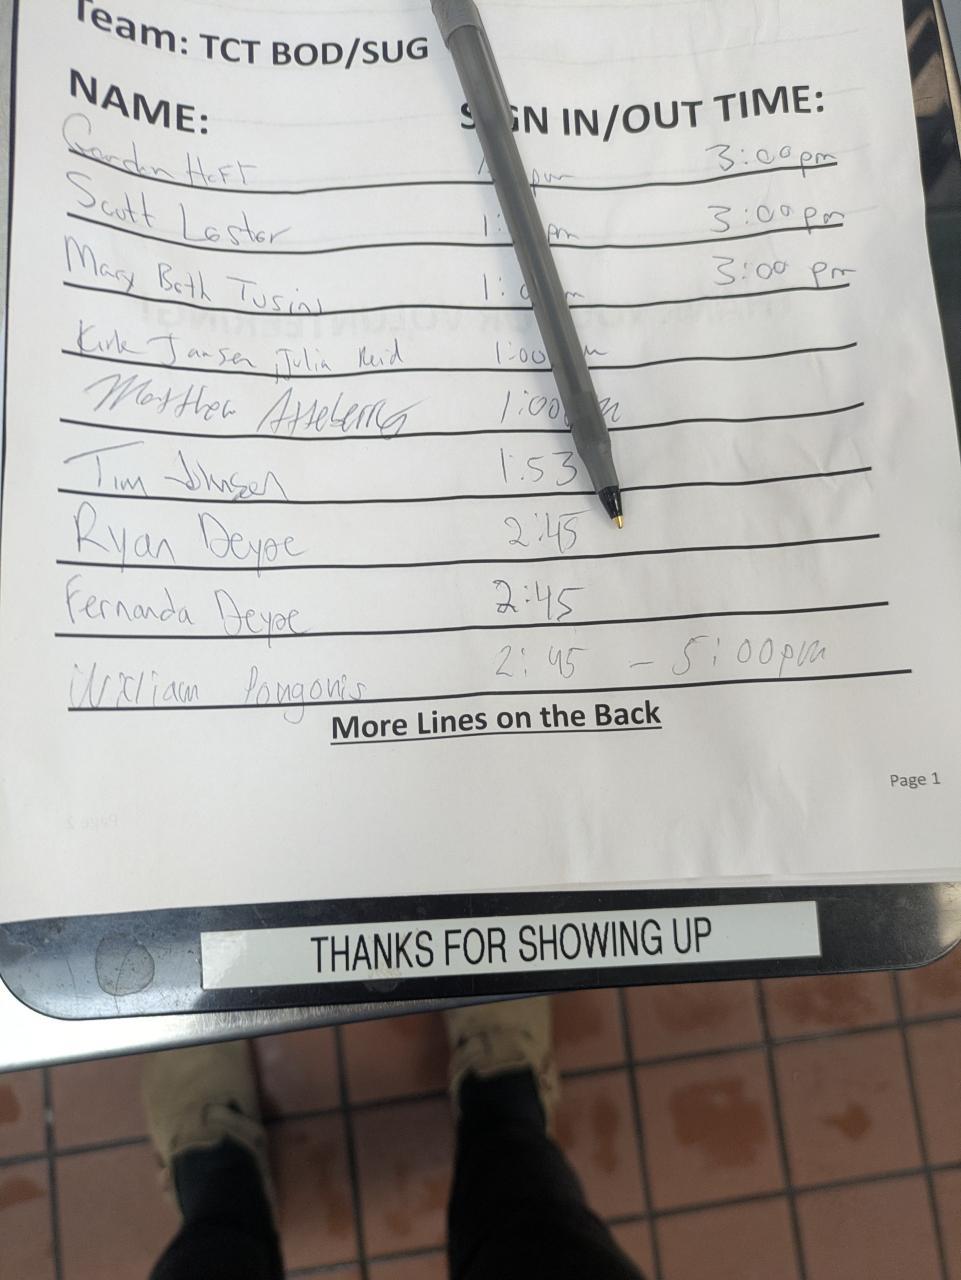 Team: TCT BOD/SUG
NAME: SIGN IN/OUT TIME:
Gordon Hoft pm 3:00pm
Scott Lester 1: pm 3:00pm
Mary Beth Tusini 1:0 m 3:00 pm
Kirk Jansen, Julia Reid 1:00 m
Matthew Atteberry 1:00 m
Tim Johnson 1:53
Ryan Deyoe 2:45
Fernanda Deyoe 2:45
William Pongonis 2:45 - 5:00pm
More Lines on the Back
Page 1
THANKS FOR SHOWING UP